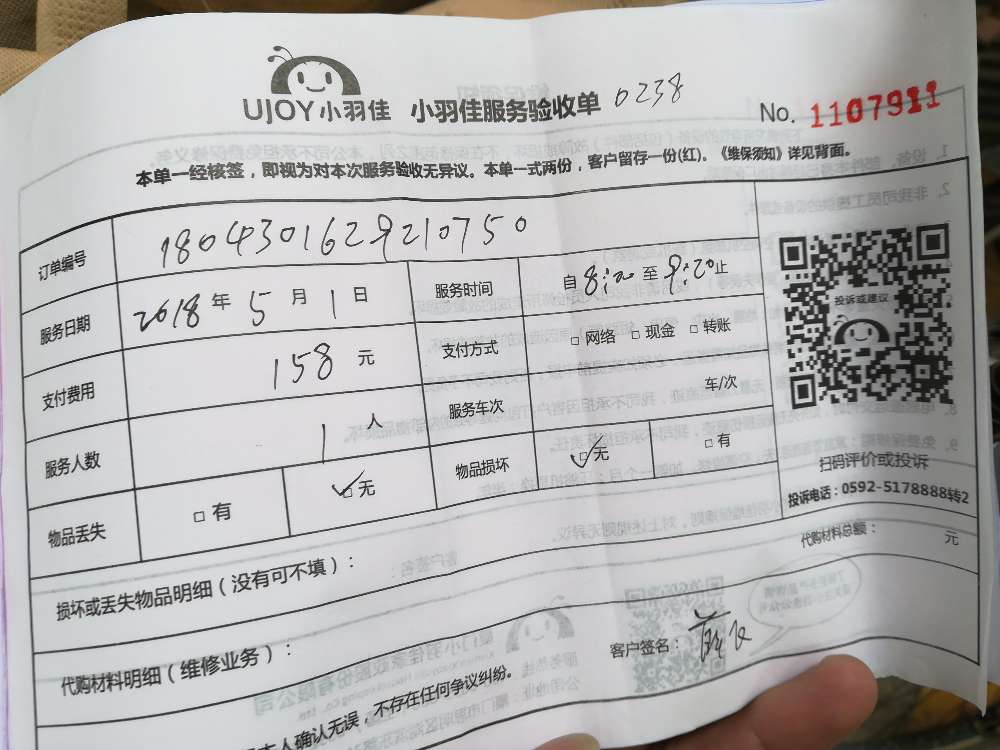 UJOY小羽佳 小羽佳服务验收单 0238
No. 1107911
本单一经核签，即视为对本次服务验收无异议。本单一式两份，客户留存一份(红)。《维保须知》详见背面。
订单编号 1804301629210750
服务日期 2018年5月1日 服务时间 自8:20至9:20止
支付费用 158元 支付方式 □网络 □现金 □转账
服务人数 1人 服务车次 车/次
物品丢失 □有 ✓□无 物品损坏 ✓□无 □有
投诉或建议
扫码评价或投诉
投诉电话：0592-5178888转2
损坏或丢失物品明细（没有可不填）：
代购材料明细（维修业务）： 代购材料总额： 元
本人确认无误，不存在任何争议纠纷。 客户签名：